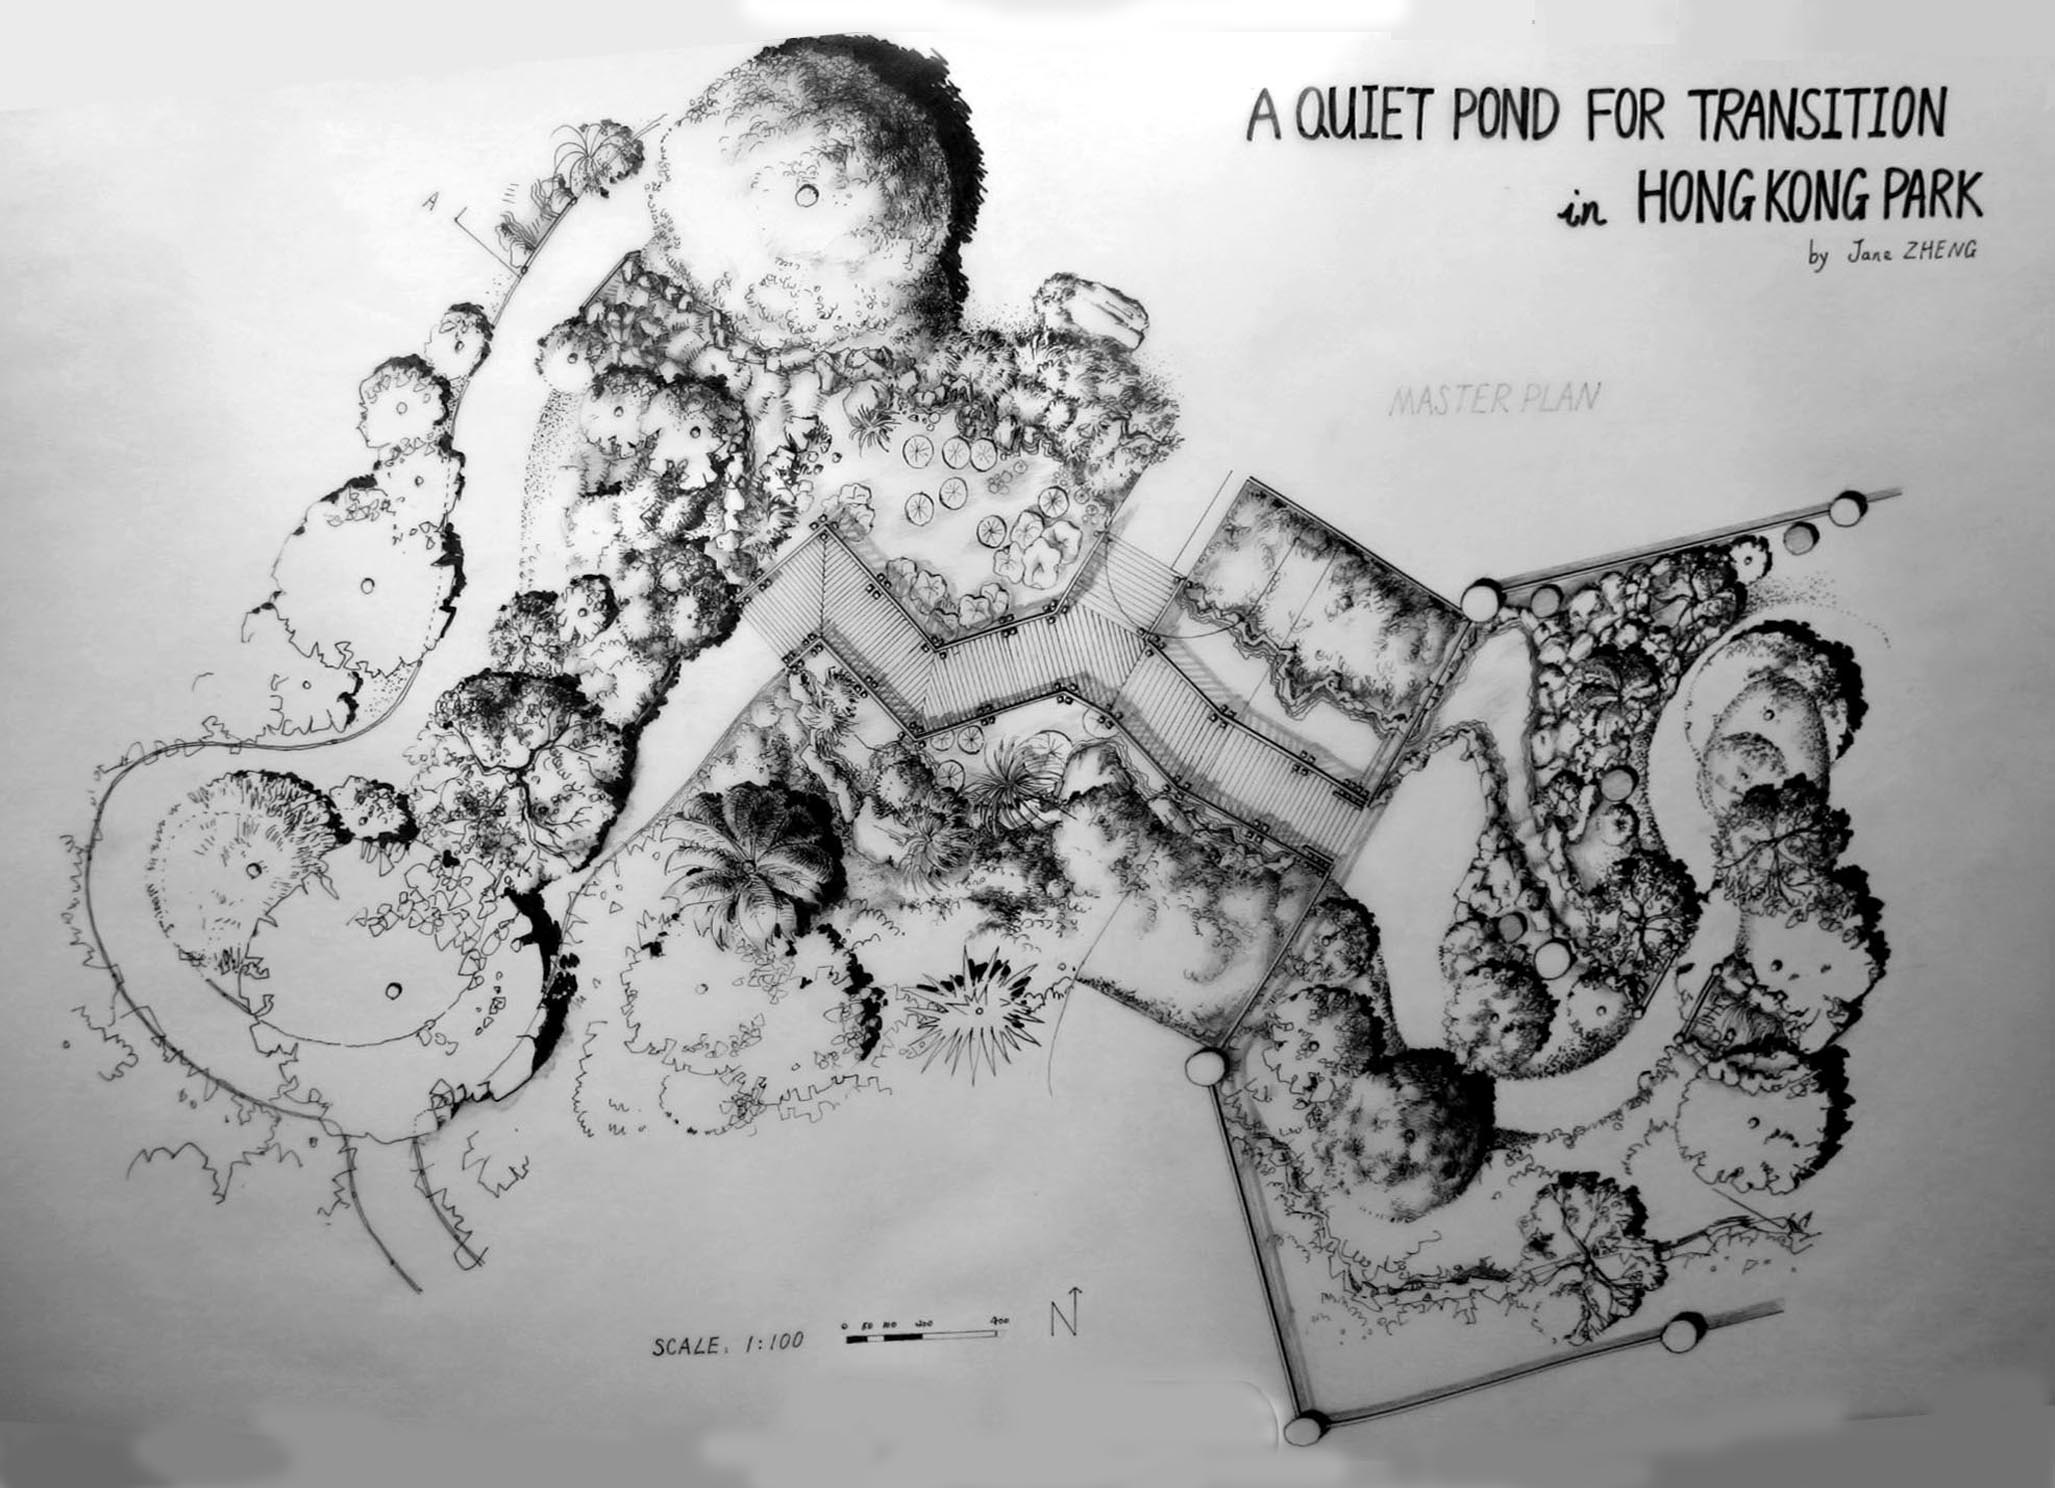 A QUIET POND FOR TRANSITION
in HONG KONG PARK
by Jane ZHENG
A
MASTER PLAN
SCALE. 1:100
0 50 100 200 400
N